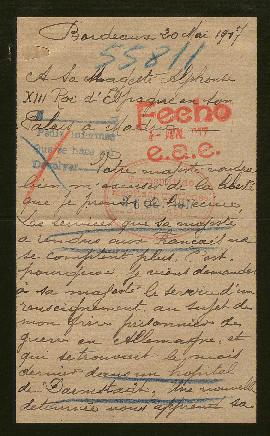 Bordeaux 30 Mai 1917
55811
A Sa Majesté Alphonse
XIII Roi d'Espagne en son
Palais à Madrid
Fecho
JUN. 917
e.a.e.
Pedir informes
que se hace
Devolver
Votre majesté voudra
bien m'excuser de la liberté
que je prends
Les services que sa majesté
a rendus aux français ne
se comptent plus. C'est
pourquoi je viens demander
à sa majesté le service d'un
renseignement au sujet de
mon frère prisonnier de
guerre en Allemagne, et
qui se trouvait le mois
dernier dans un hôpital
de Darmstadt. Une nouvelle
détournée nous apprend sa